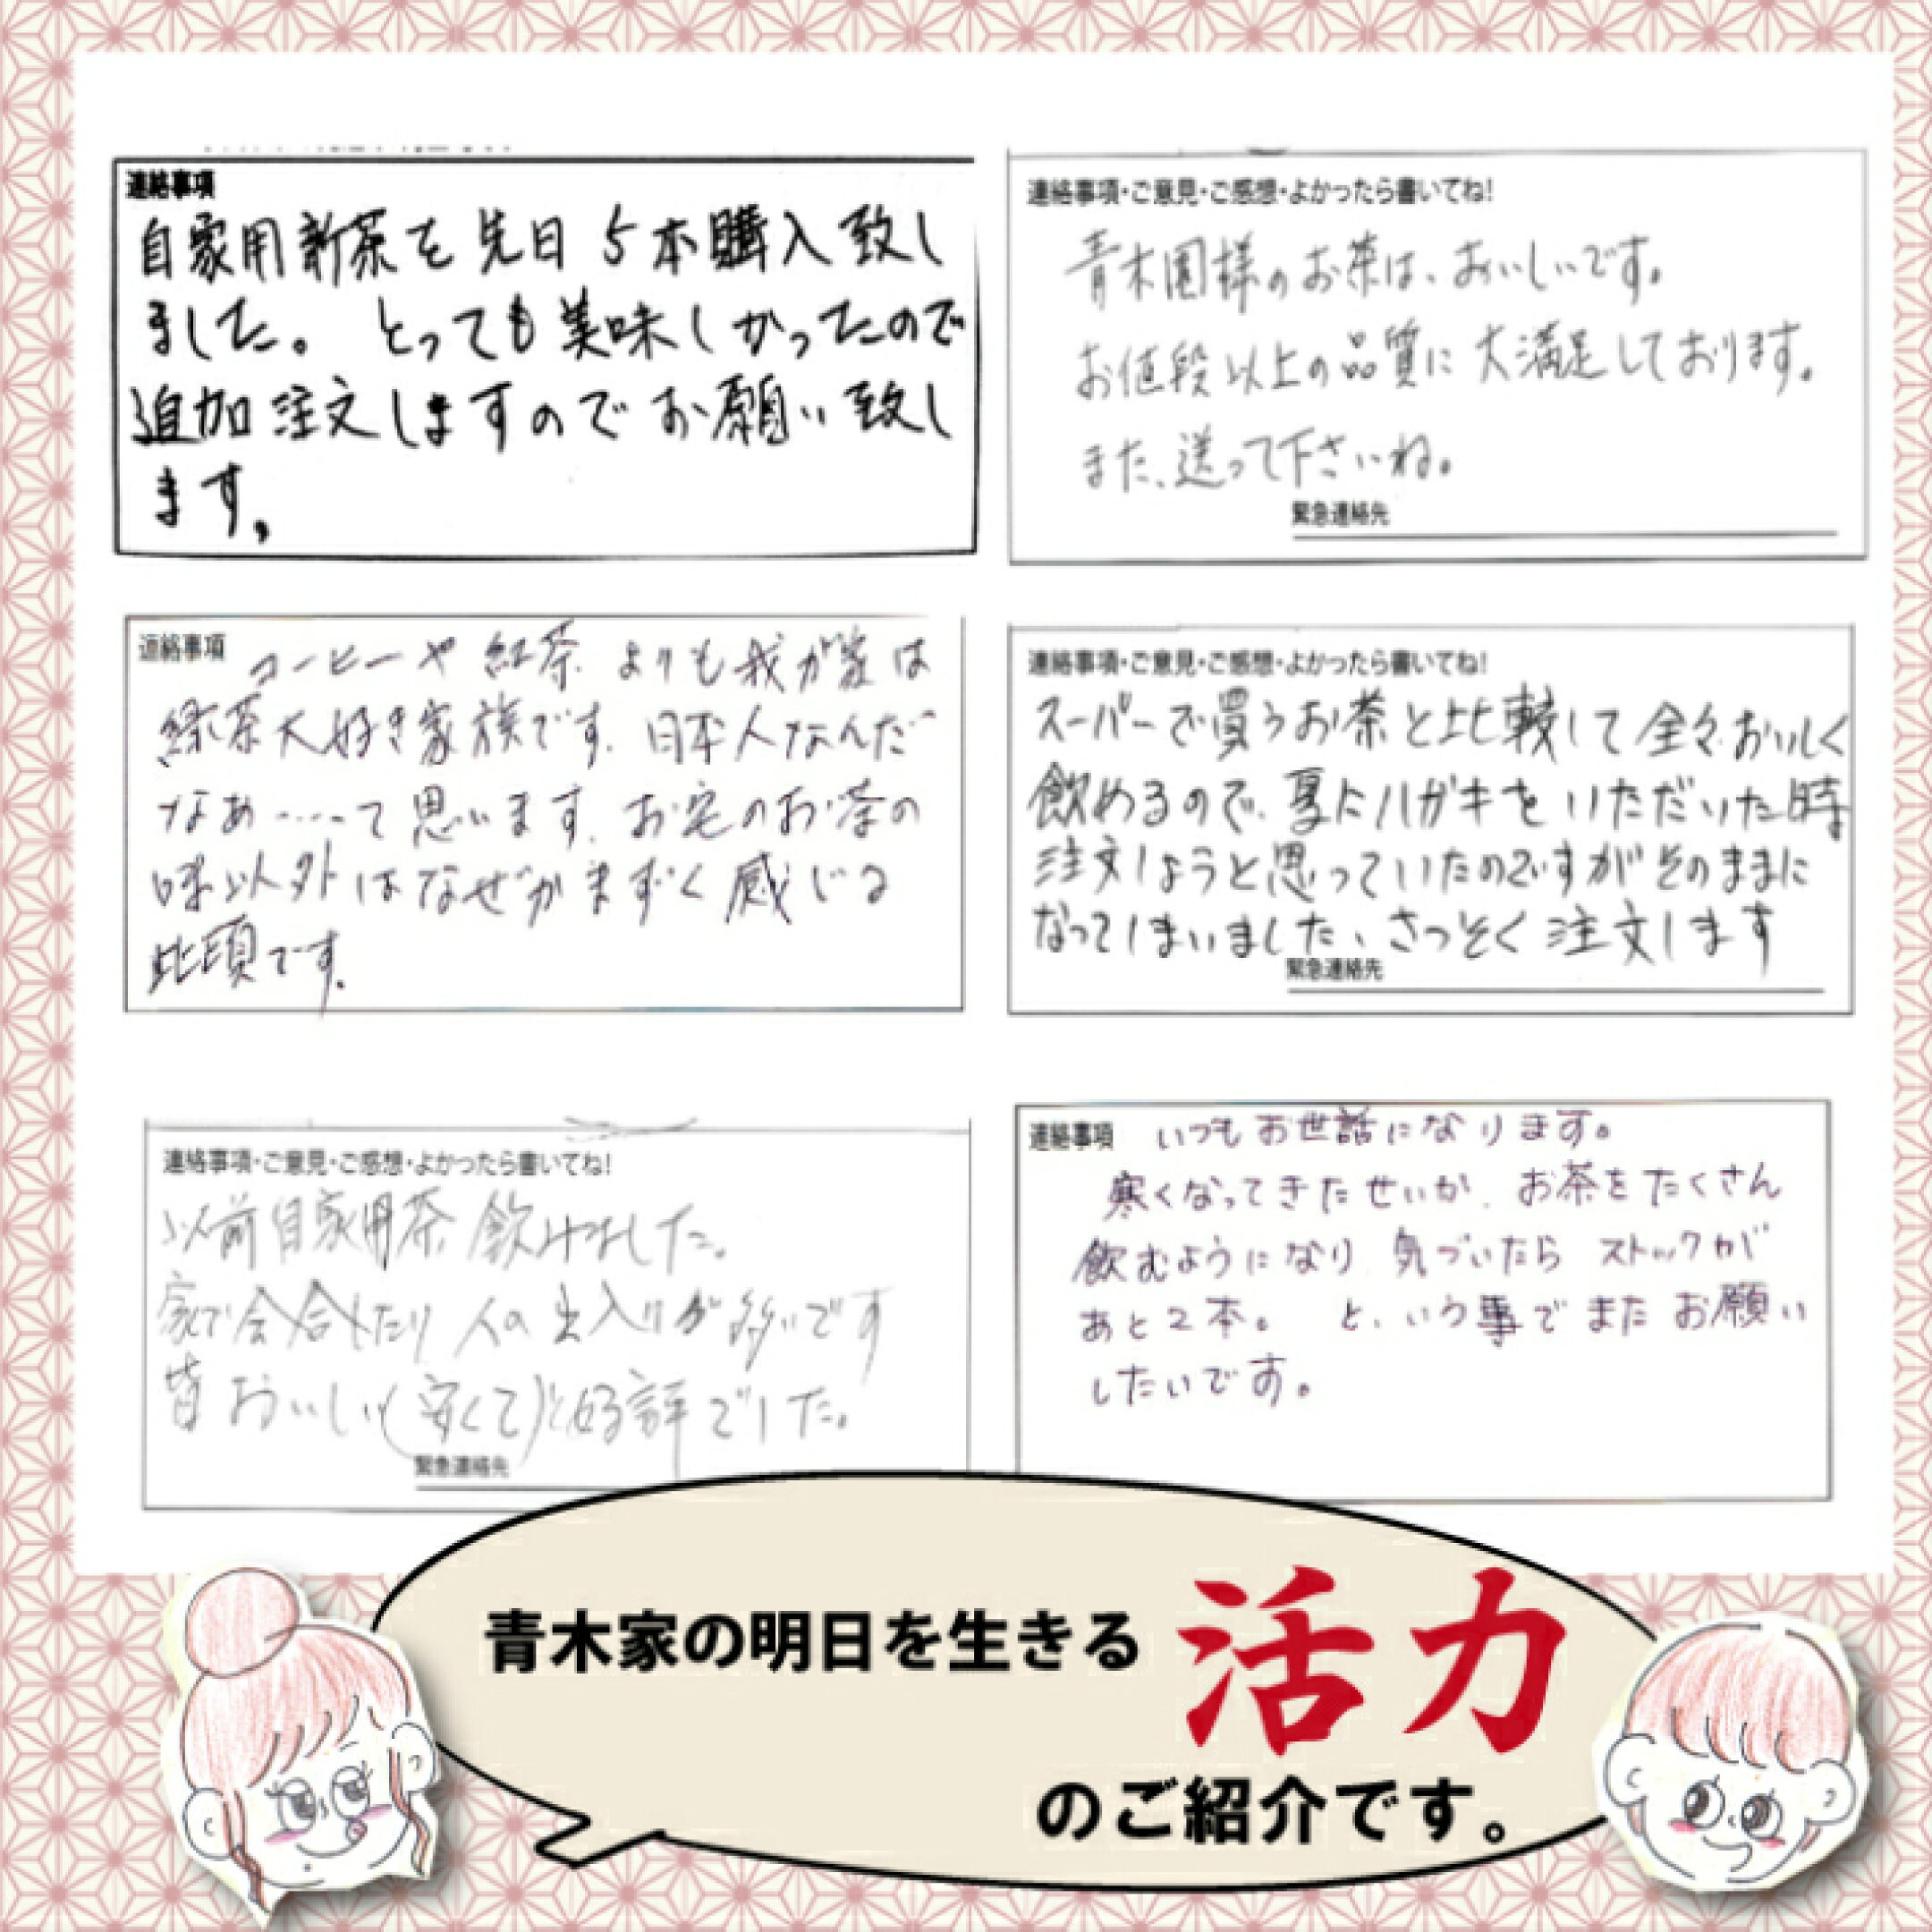 連絡事項
自家用新茶を先日5本購入致し
ました。とっても美味しかったので
追加注文しますのでお願い致し
ます。
連絡事項・ご意見・ご感想・よかったら書いてね!
青木園様のお茶は、おいしいです。
お値段以上の品質に大満足しております。
また、送って下さいね。
緊急連絡先
連絡事項
コーヒーや紅茶よりも我が家は
緑茶大好き家族です。日本人なんだ
なあ……って思います。お宅のお茶の
味以外はなぜかまずく感じる
此頃です。
連絡事項・ご意見・ご感想・よかったら書いてね!
スーパーで買うお茶と比較して全々おいしく
飲めるので、夏にハガキをいただいた時
注文しようと思っていたのですがそのままに
なってしまいました、さっそく注文します
緊急連絡先
連絡事項・ご意見・ご感想・よかったら書いてね!
以前自家用茶飲みました。
家で会合したり人の出入りが多いです
皆おいしい(安くて)と好評でした。
緊急連絡先
連絡事項
いつもお世話になります。
寒くなってきたせいか、お茶をたくさん
飲むようになり気づいたらストックが
あと2本。と、いう事でまたお願い
したいです。
青木家の明日を生きる活力
のご紹介です。